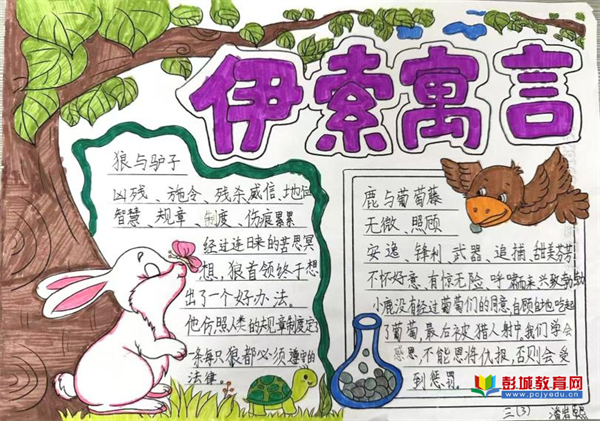 伊索寓言
狼与驴子
凶残、施令、残杀、威信、地
智慧、规章、制度、伤痕累累
经过连日来的苦思冥
想,狼首领终于想
出了一个好办法。
他仿照人类的规章制度定了
一条每只狼都必须遵守的
法律。
鹿与葡萄藤
无微、照顾
安逸、锋利、武器、追捕、甜美芬芳
不怀好意、有惊无险、呼啸而来、兴致勃勃
小鹿没有经过葡萄们的同意,自顾自地吃起
了葡萄,最后被猎人射中,我们学会
感恩,不能恩将仇报,否则会受
到惩罚。
三(3)
彭城教育网
www.pcjyedu.cn